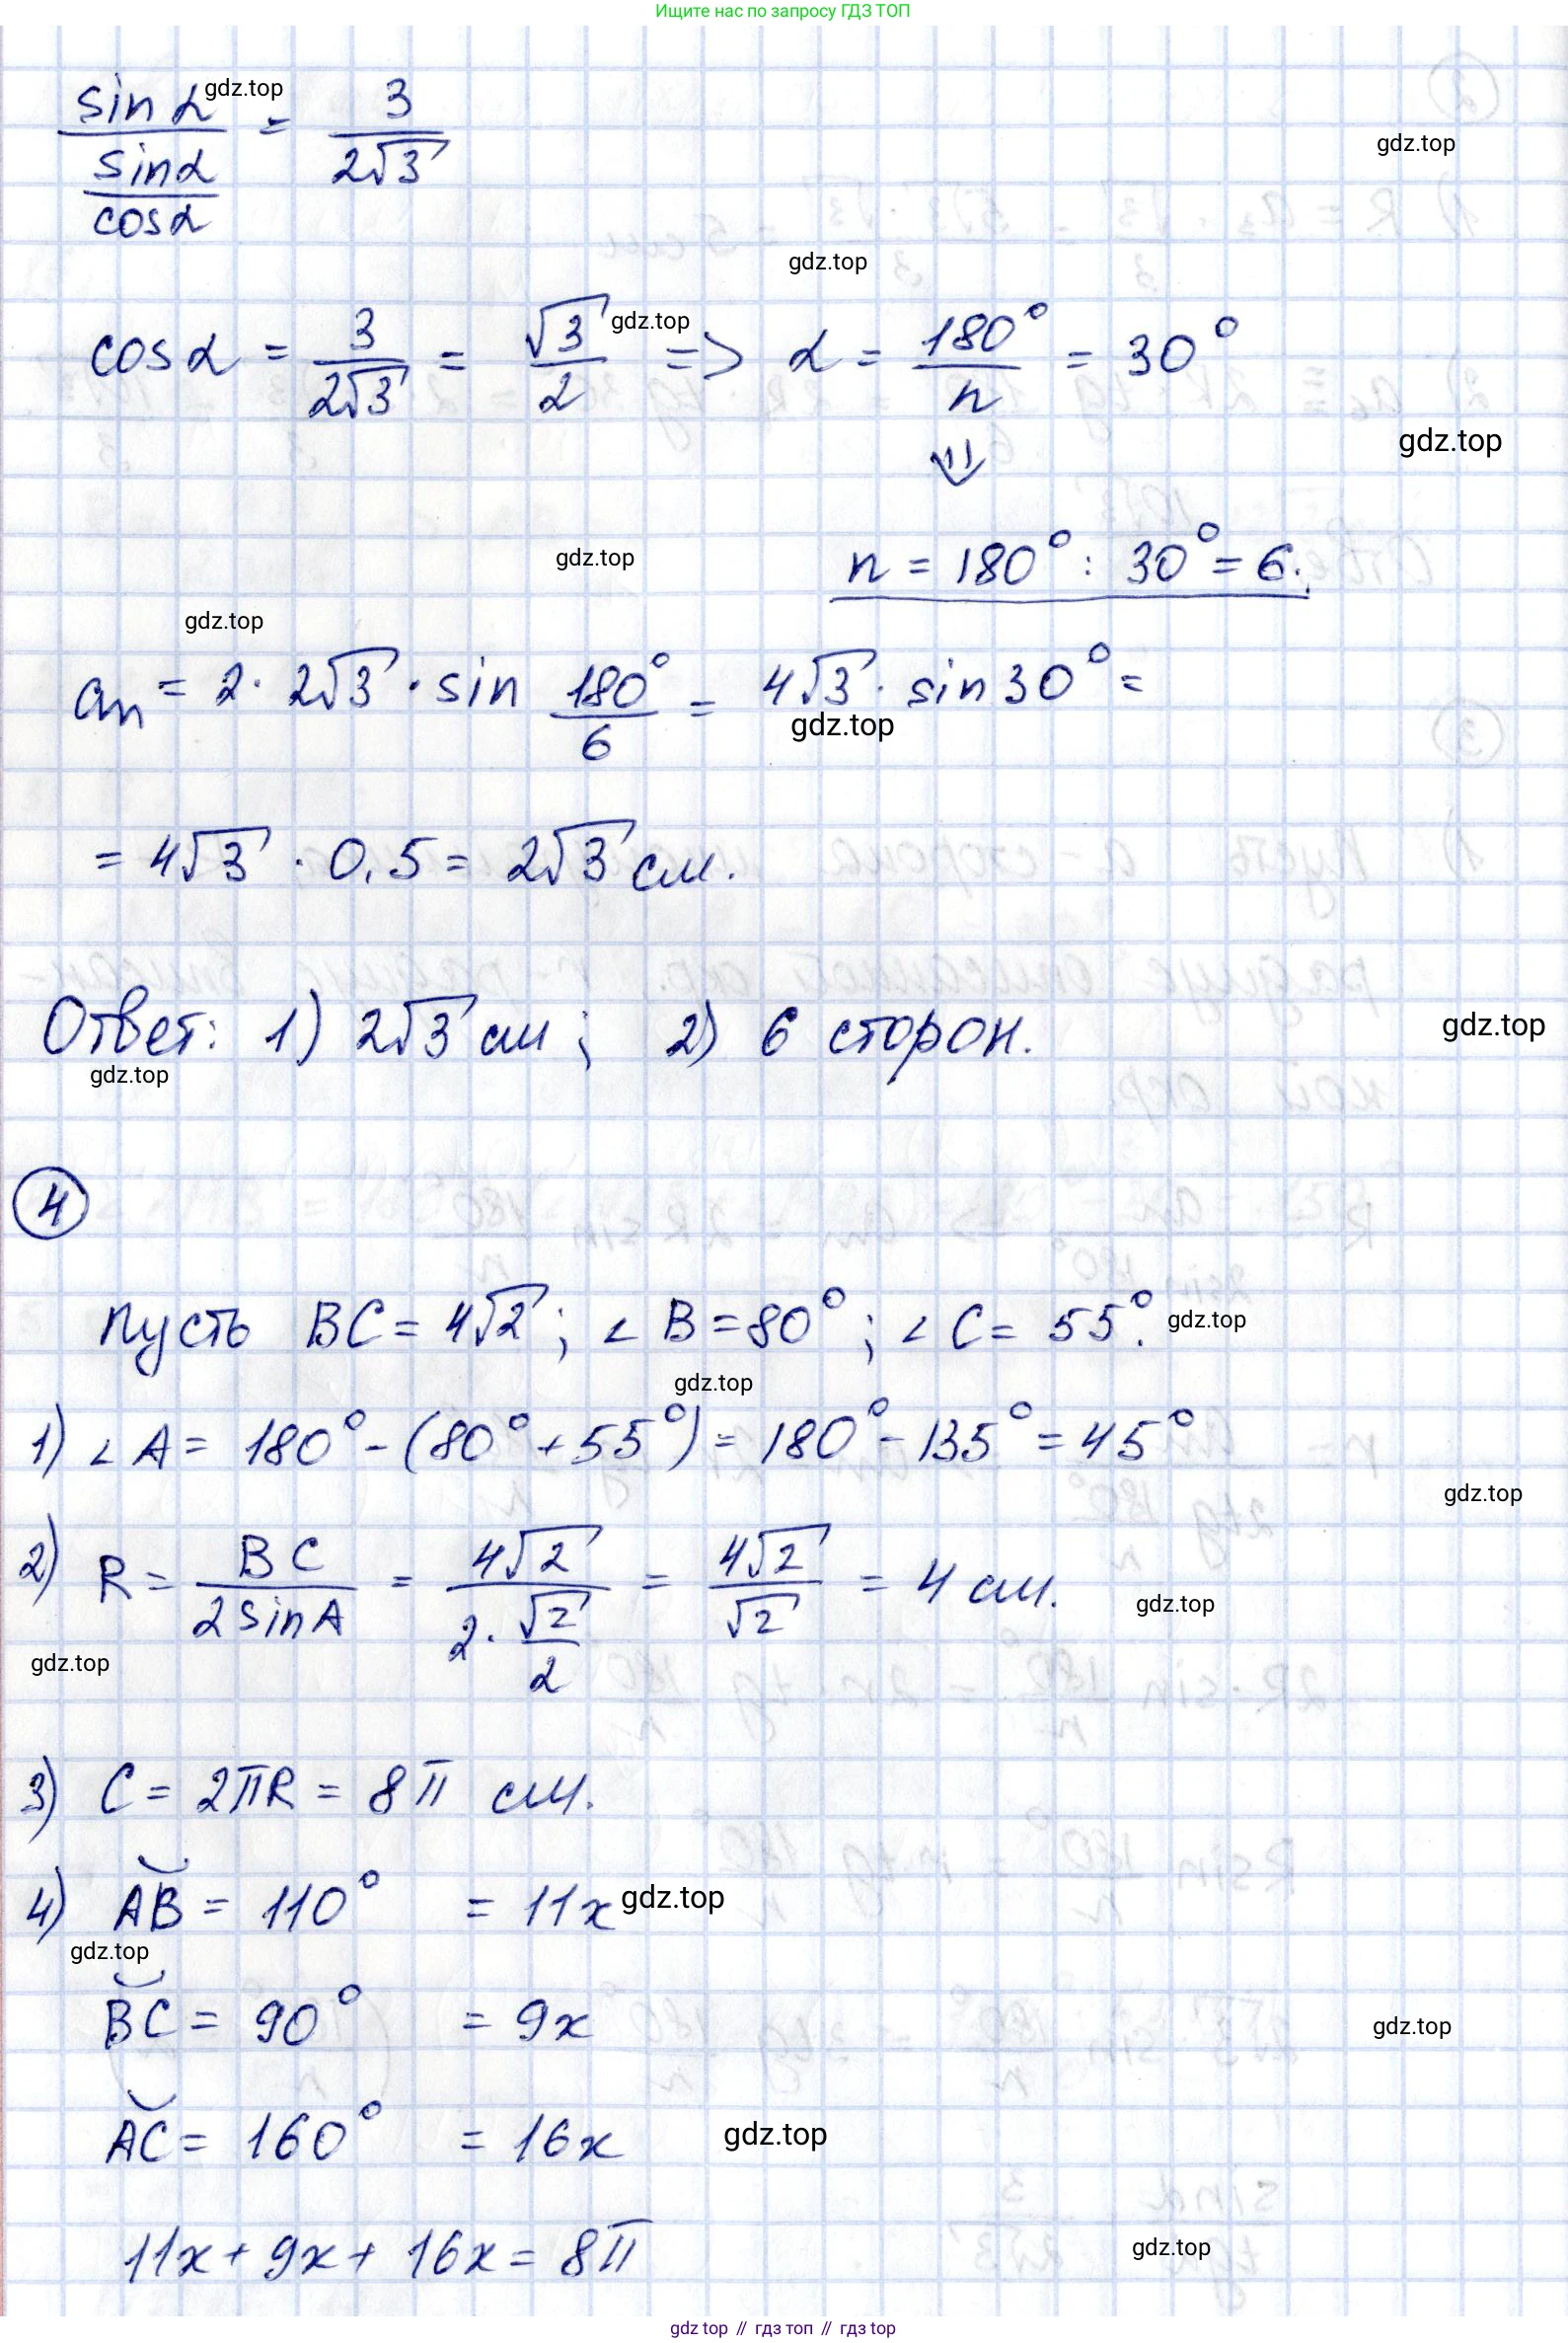 Ищите нас по запросу ГДЗ ТОП
sin α / (sin α / cos α) = 3 / (2√3)
gdz.top
gdz.top
gdz.top
cos α = 3 / (2√3) = √3 / 2 => α = 180° / n = 30°
gdz.top
gdz.top
⇓
gdz.top
n = 180° : 30° = 6.
gdz.top
aₙ = 2 · 2√3 · sin 180° / 6 = 4√3 · sin 30° =
gdz.top
= 4√3 · 0,5 = 2√3 см.
Ответ: 1) 2√3 см ; 2) 6 сторон.
gdz.top
gdz.top
④
Пусть BC = 4√2 ; ∠ B = 80° ; ∠ C = 55°.
gdz.top
gdz.top
1) ∠ A = 180° - (80° + 55°) = 180° - 135° = 45°
gdz.top
2) R = BC / (2 sin A) = 4√2 / (2 · √2 / 2) = 4√2 / √2 = 4 см.
gdz.top
gdz.top
3) C = 2πR = 8π см.
4) ◡AB = 110° = 11x
gdz.top
gdz.top
◡BC = 90° = 9x
gdz.top
◡AC = 160° = 16x
gdz.top
11x + 9x + 16x = 8π
gdz.top
gdz.top // гдз топ // гдз top